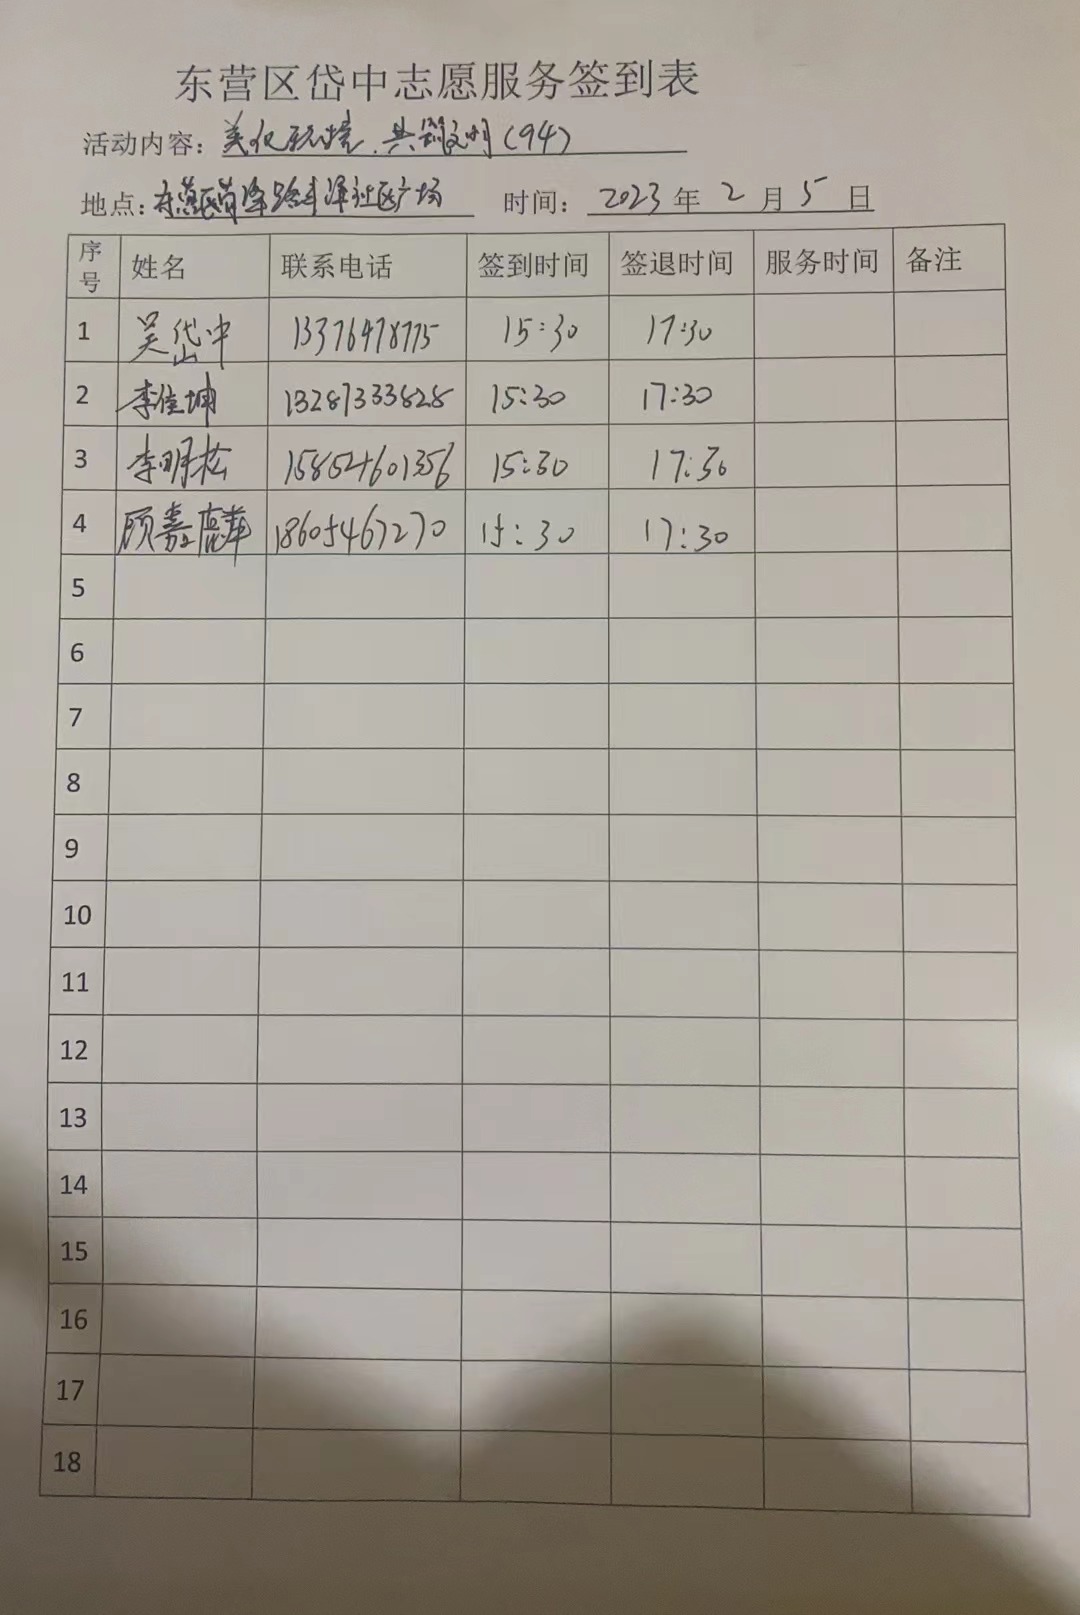 东营区岱中志愿服务签到表
活动内容：美化环境，共创文明（94）
地点：东营区 路 社区广场 时间：2023年2月5日
序号 姓名 联系电话 签到时间 签退时间 服务时间 备注
1 吴岱中 13376478775 15:30 17:30
2 李佳坤 13287333828 15:30 17:30
3 李明松 15854601356 15:30 17:30
4 顾嘉 18605467270 15:30 17:30
5
6
7
8
9
10
11
12
13
14
15
16
17
18